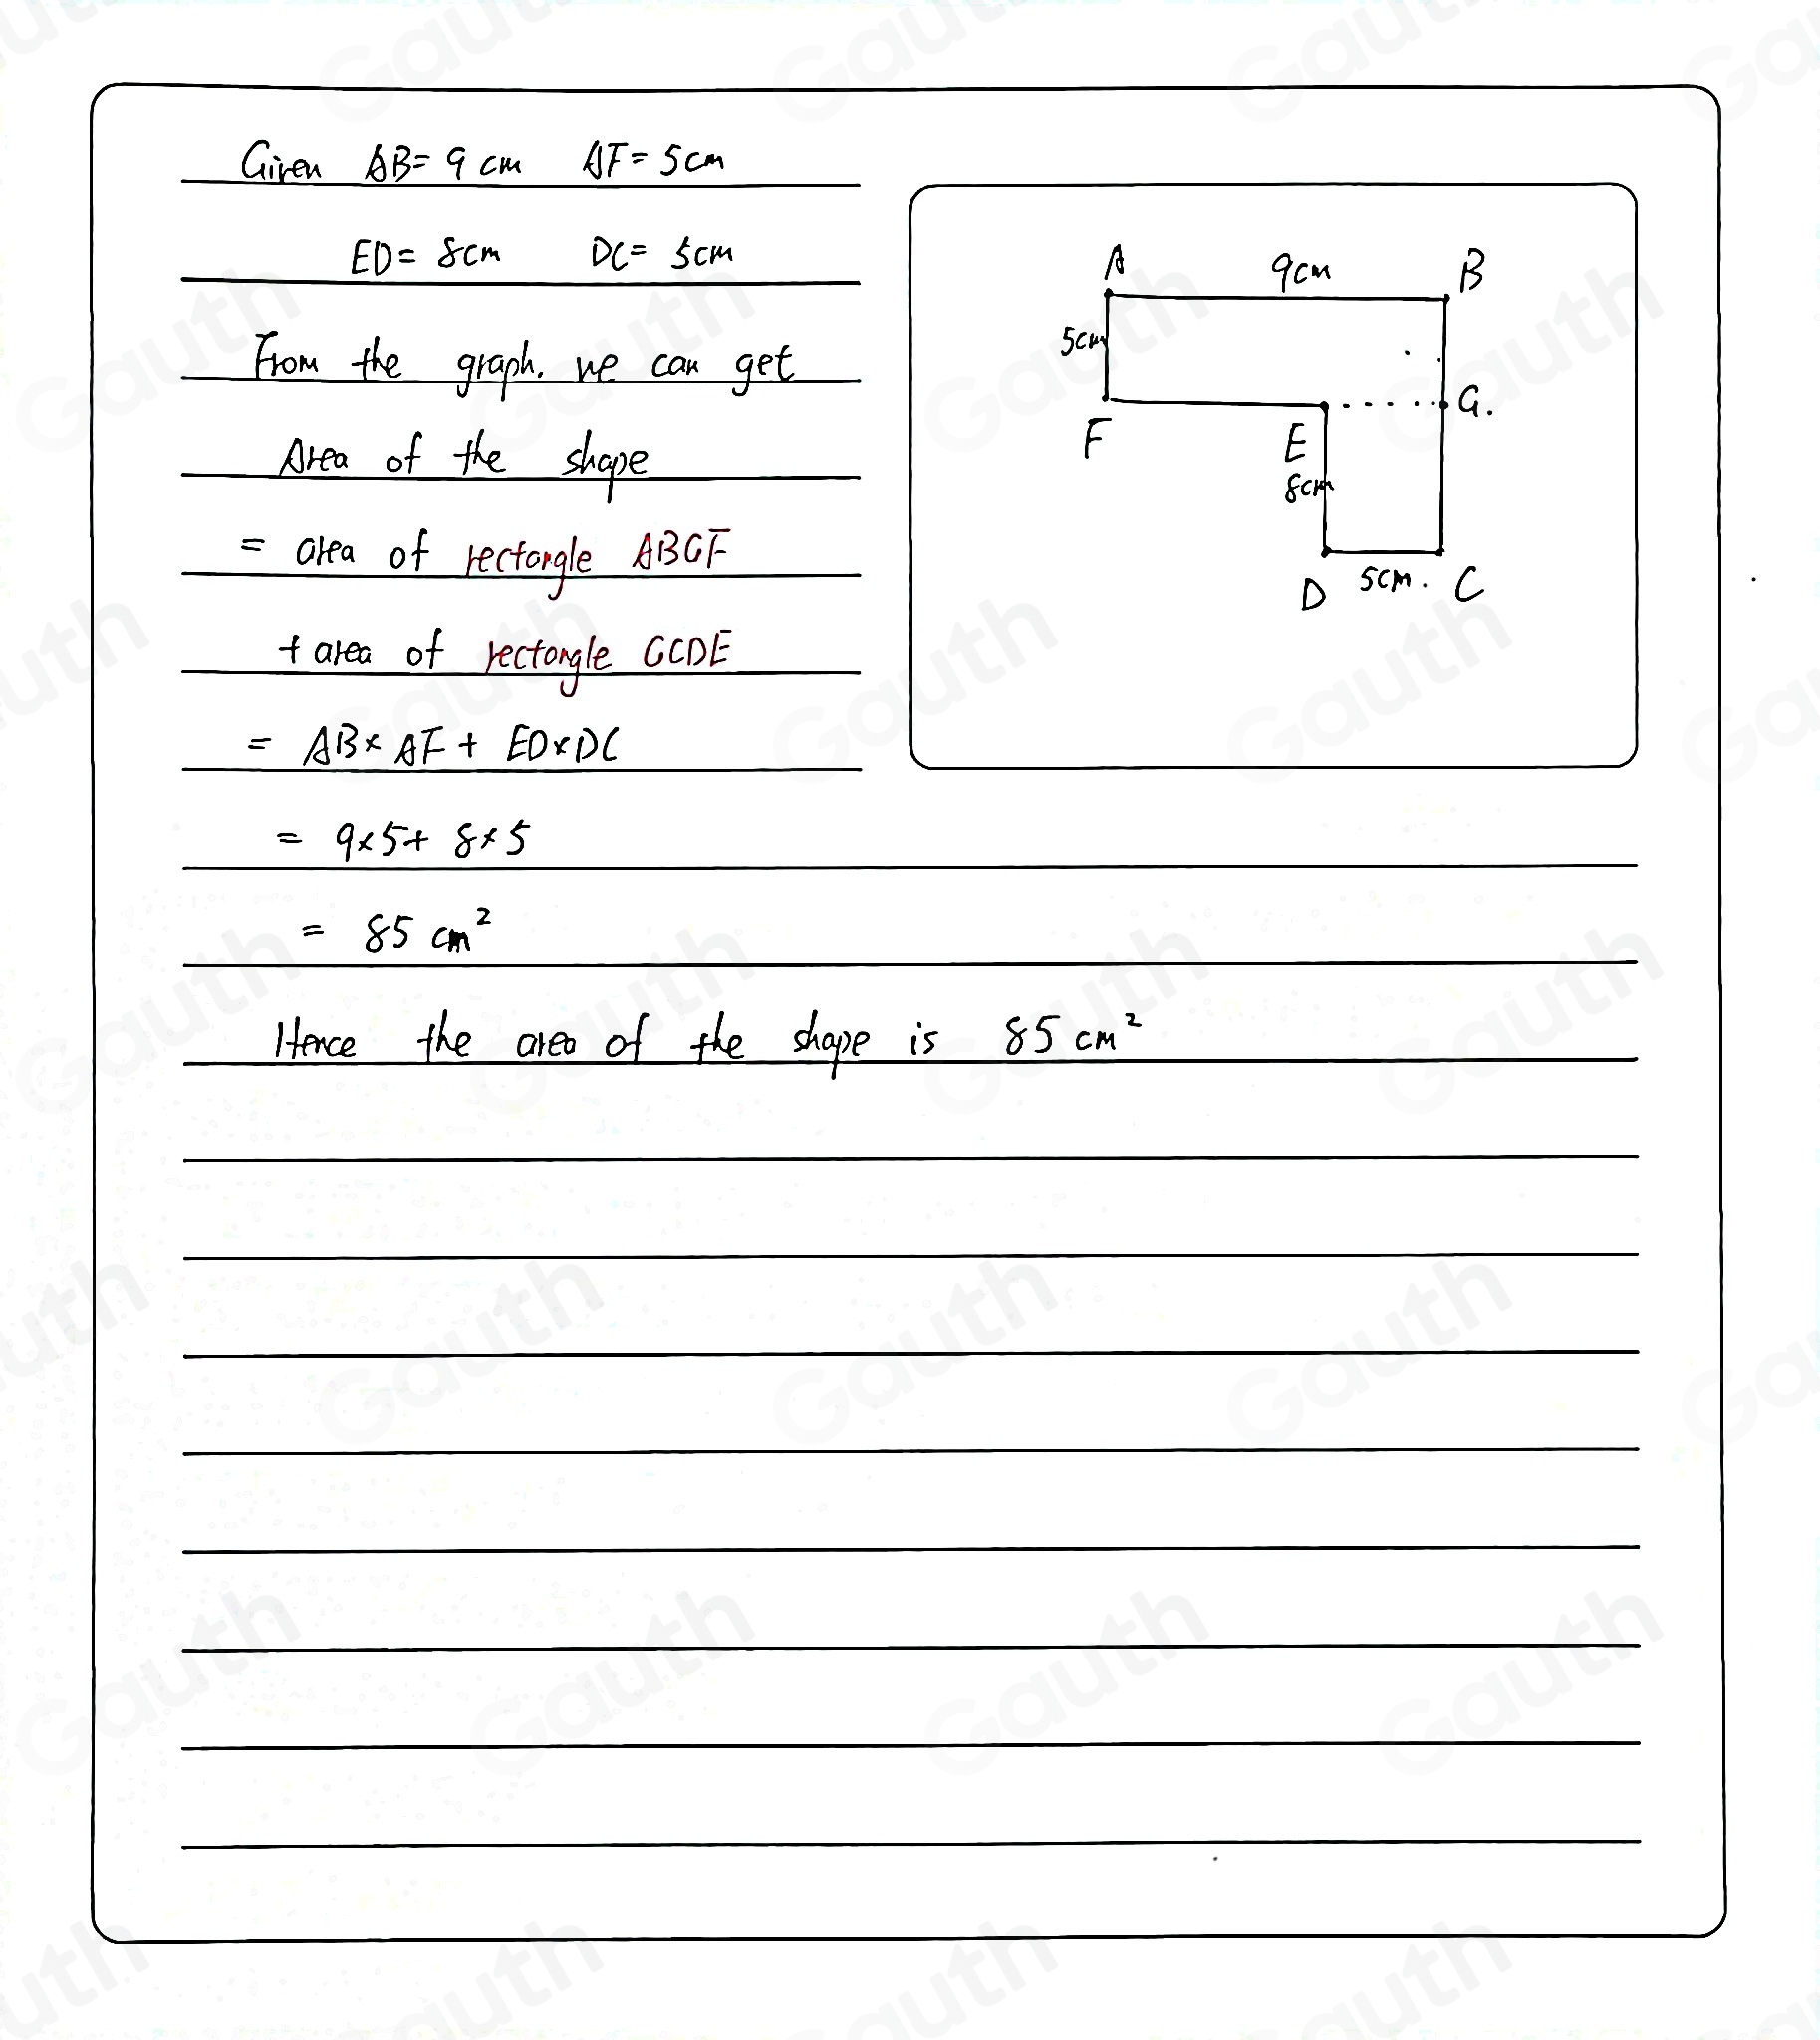 Given AB= 9 cm AF= 5cm
ED= 8cm DC= 5cm
From the graph. we can get
Area of the shape
= area of rectangle ABGF
+ area of rectangle GCDE
= AB× AF + ED×DC
= 9×5+ 8×5
= 85 cm²
Hence the area of the shape is 85 cm²
A 9cm B
5cm
F E G.
8cm
D 5cm. C
Gauth